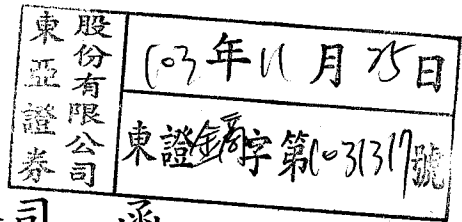 東亞證券
股份有限公司
103年11月25日
東證字第1031317號
司 函